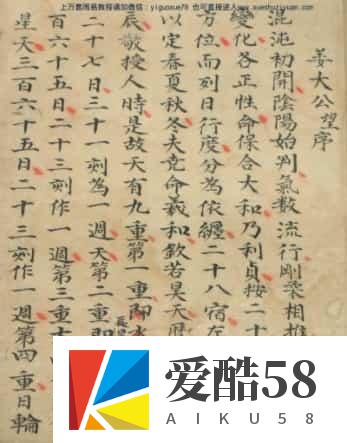 上万套周易教程请加微信：yiguoxue78 也可直接进入
姜大公望序
混沌初開陰陽始判氣數流行剛柔相推
變化各正性命保合大和乃利貞按二十
方位而列日行度分為依纏二十八宿左
以定春夏秋冬夫克命羲和欽若昊天曆
辰敬授人時是故天有九重第一重即水
二十七日三十一刻為一週天第二重即
百六十五日二十三刻作一週第三重
星天三百六十五日二十三刻作一週第四重日輪
爱酷58
AIKU58